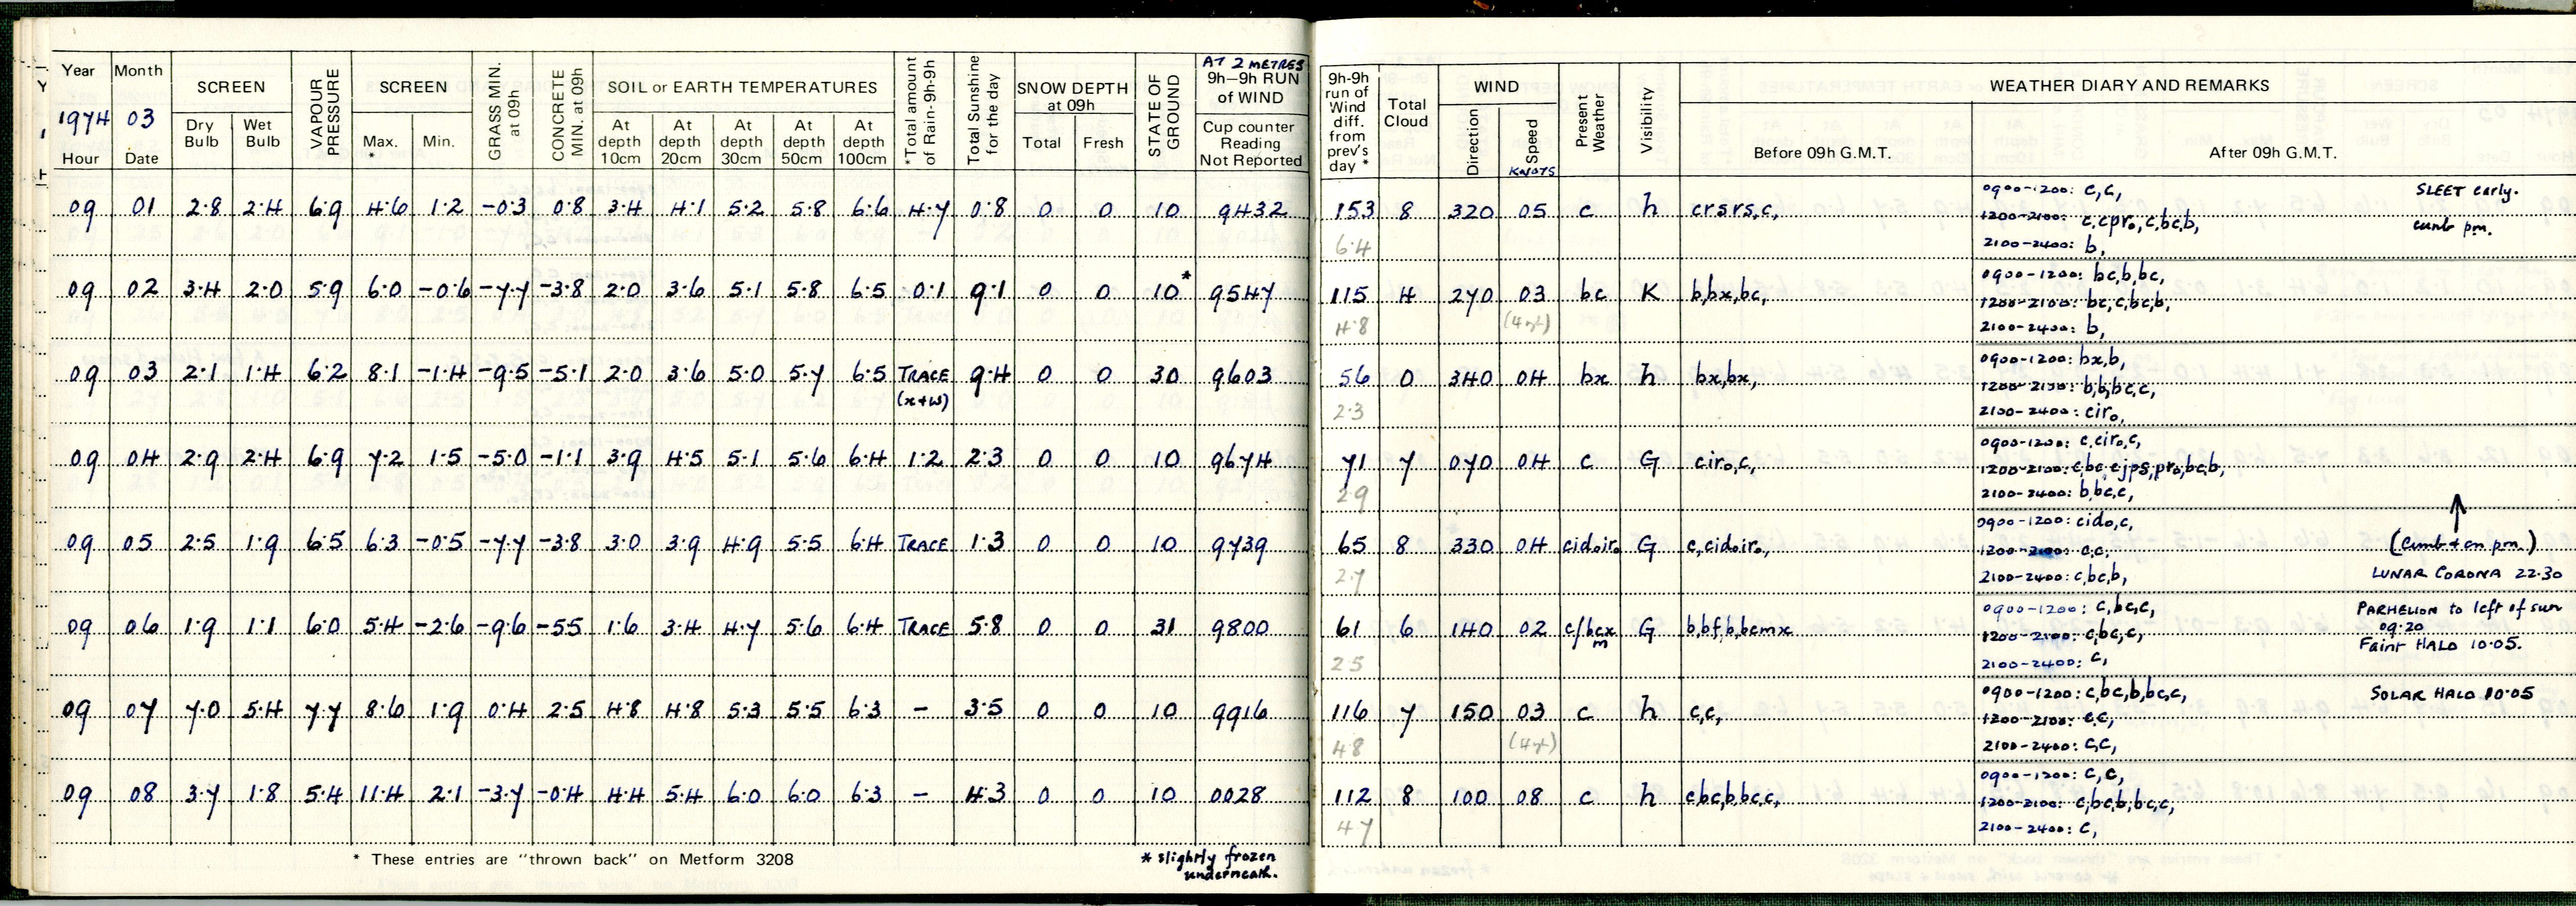 Year Month SCREEN VAPOUR PRESSURE SCREEN GRASS MIN. at 09h CONCRETE MIN. at 09h SOIL or EARTH TEMPERATURES *Total amount of Rain-9h-9h Total Sunshine for the day SNOW DEPTH at 09h STATE OF GROUND AT 2 METRES 9h-9h RUN of WIND
1974 03
Hour Date Dry Bulb Wet Bulb Max. * Min. At depth 10cm At depth 20cm At depth 30cm At depth 50cm At depth 100cm Total Fresh Cup counter Reading Not Reported
09 01 2.8 2.4 6.9 4.6 1.2 -0.3 0.8 3.4 4.1 5.2 5.8 6.6 4.7 0.8 0 0 10 9432
09 02 3.4 2.0 5.9 6.0 -0.6 -7.7 -3.8 2.0 3.6 5.1 5.8 6.5 0.1 9.1 0 0 10* 9547
09 03 2.1 1.4 6.2 8.1 -1.4 -9.5 -5.1 2.0 3.6 5.0 5.7 6.5 TRACE 9.4 0 0 30 9603
(x+w)
09 04 2.9 2.4 6.9 7.2 1.5 -5.0 -1.1 3.9 4.5 5.1 5.6 6.4 1.2 2.3 0 0 10 9674
09 05 2.5 1.9 6.5 6.3 -0.5 -7.7 -3.8 3.0 3.9 4.9 5.5 6.4 TRACE 1.3 0 0 10 9739
09 06 1.9 1.1 6.0 5.4 -2.6 -9.6 -5.5 1.6 3.4 4.7 5.6 6.4 TRACE 5.8 0 0 31 9800
09 07 7.0 5.4 7.7 8.6 1.9 0.4 2.5 4.8 4.8 5.3 5.5 6.3 – 3.5 0 0 10 9916
09 08 3.7 1.8 5.4 11.4 2.1 -3.7 -0.4 4.4 5.4 6.0 6.0 6.3 – 4.3 0 0 10 0028
* These entries are "thrown back" on Metform 3208
* slightly frozen
underneath.
9h-9h run of Wind diff. from prev's day * Total Cloud WIND Present Weather Visibility WEATHER DIARY AND REMARKS
Direction Speed KNOTS Before 09h G.M.T. After 09h G.M.T.
0900-1200: c,c, SLEET early.
153 8 320 05 c h crsrs,c, 1200-2100: c,cpr₀,c,bc,b, cumb pm.
6.4 2100-2400: b,
0900-1200: bc,b,bc,
115 4 270 03 bc K b,bx,bc, 1200-2100: bc,c,bc,b,
4.8 2100-2400: b,
0900-1200: bx,b,
56 0 340 04 bx h bx,bx, 1200-2100: b,b,bc,c,
2.3 2100-2400: cir₀,
0900-1200: c,cir₀,c,
71 7 070 04 c G cir₀,c, 1200-2100: c,bc,cjps,pr₀,bc,b,
2.9 2100-2400: b,bc,c,
0900-1200: cid₀,c,
65 8 330 04 cid₀ir₀ G c,cid₀ir₀, 1200-2100: c,c, (cumb + cn pm)
2.7 2100-2400: c,bc,b, LUNAR CORONA 22.30
0900-1200: c,bc,c, PARHELION to left of sun
09.20
61 6 140 02 c/bcx m G b,bf,b,bcmx 1200-2100: c,bc,c, Faint HALO 10.05.
2.5 2100-2400: c,
0900-1200: c,bc,b,bc,c, SOLAR HALO 10.05
116 7 150 03 c h c,c, 1200-2100: c,c,
4.8 2100-2400: c,c,
0900-1200: c,c,
112 8 100 08 c h c,bc,b,bc,c, 1200-2100: c,bc,b,bc,c,
4.7 2100-2400: c,